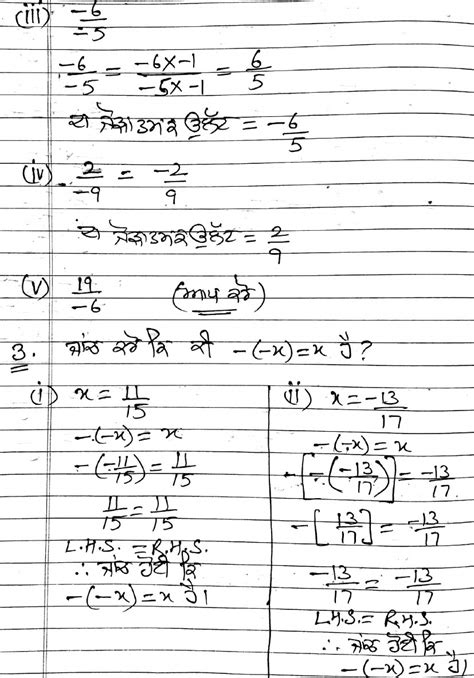 (iii) -6/-5
-6/-5 = -6×-1/-5×-1 = 6/5
ਦਾ ਜੋੜਾਤਮਕ ਉਲੱਟ = -6/5
(iv) 2/-9 = -2/9
ਦਾ ਜੋੜਾਤਮਕ ਉਲੱਟ = 2/9
(v) 19/-6 (ਆਪ ਕਰੋ)
3. ਜਾਂਚ ਕਰੋ ਕਿ ਕੀ -(-x)=x ਹੈ?
(i) x = 11/15
-(-x) = x
-(-11/15) = 11/15
11/15 = 11/15
L.H.S. = R.H.S.
∴ ਜਾਂਚ ਹੋਈ ਕਿ
-(-x) = x ਹੈ।
(ii) x = -13/17
-(-x) = x
-[-(-13/17)] = -13/17
-[13/17] = -13/17
-13/17 = -13/17
L.H.S. = R.H.S.
∴ ਜਾਂਚ ਹੋਈ ਕਿ
-(-x) = x ਹੈ।